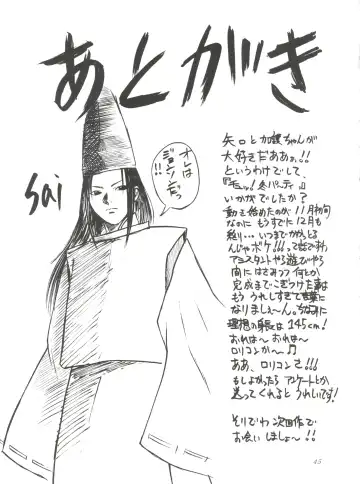 あとがき
sai
オレは
ジョンだっ
っ!!
矢口と加護ちゃんが
大好きだあぁぁ!!
というわけでして、
いかがでしたか?
動き始めたのが11月初旬
なのに もうすでに12月も
終り… いつまでかかっとる
んじゃボケ!!
アシスタントやら遊びやら
間にはさみつつ 何とか
完成までこぎつけた事は
もう うれしすぎて言葉に
なりましぇ〜ん。ちなみに
理想の身長は145cm!
おれは〜 おれは〜
ロリコンか〜♪
ああ、ロリコンさ!!!
もしよかったら アンケートとか
送ってくれると うれしいです!
それでわ 次回作で
お会い しましょ〜!!
45